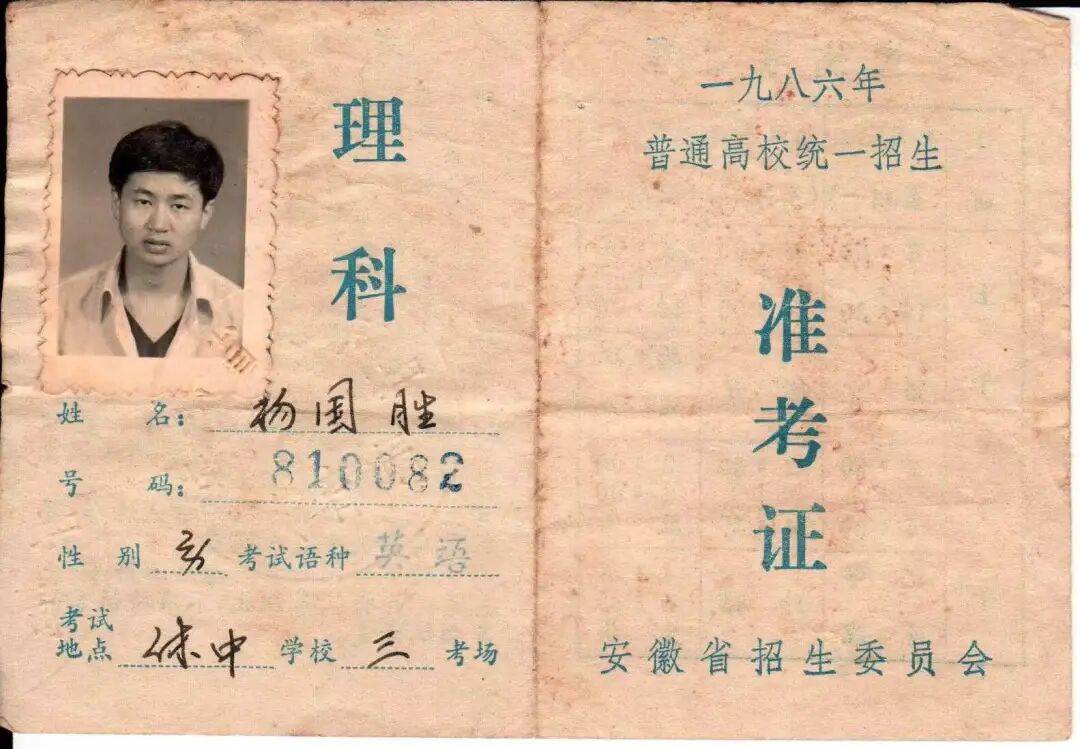 理科
姓名：杨国胜
号码：810082
性别 男 考试语种 英语
考试地点 休中 学校 三 考场
一九八六年
普通高校统一招生
准考证
安徽省招生委员会